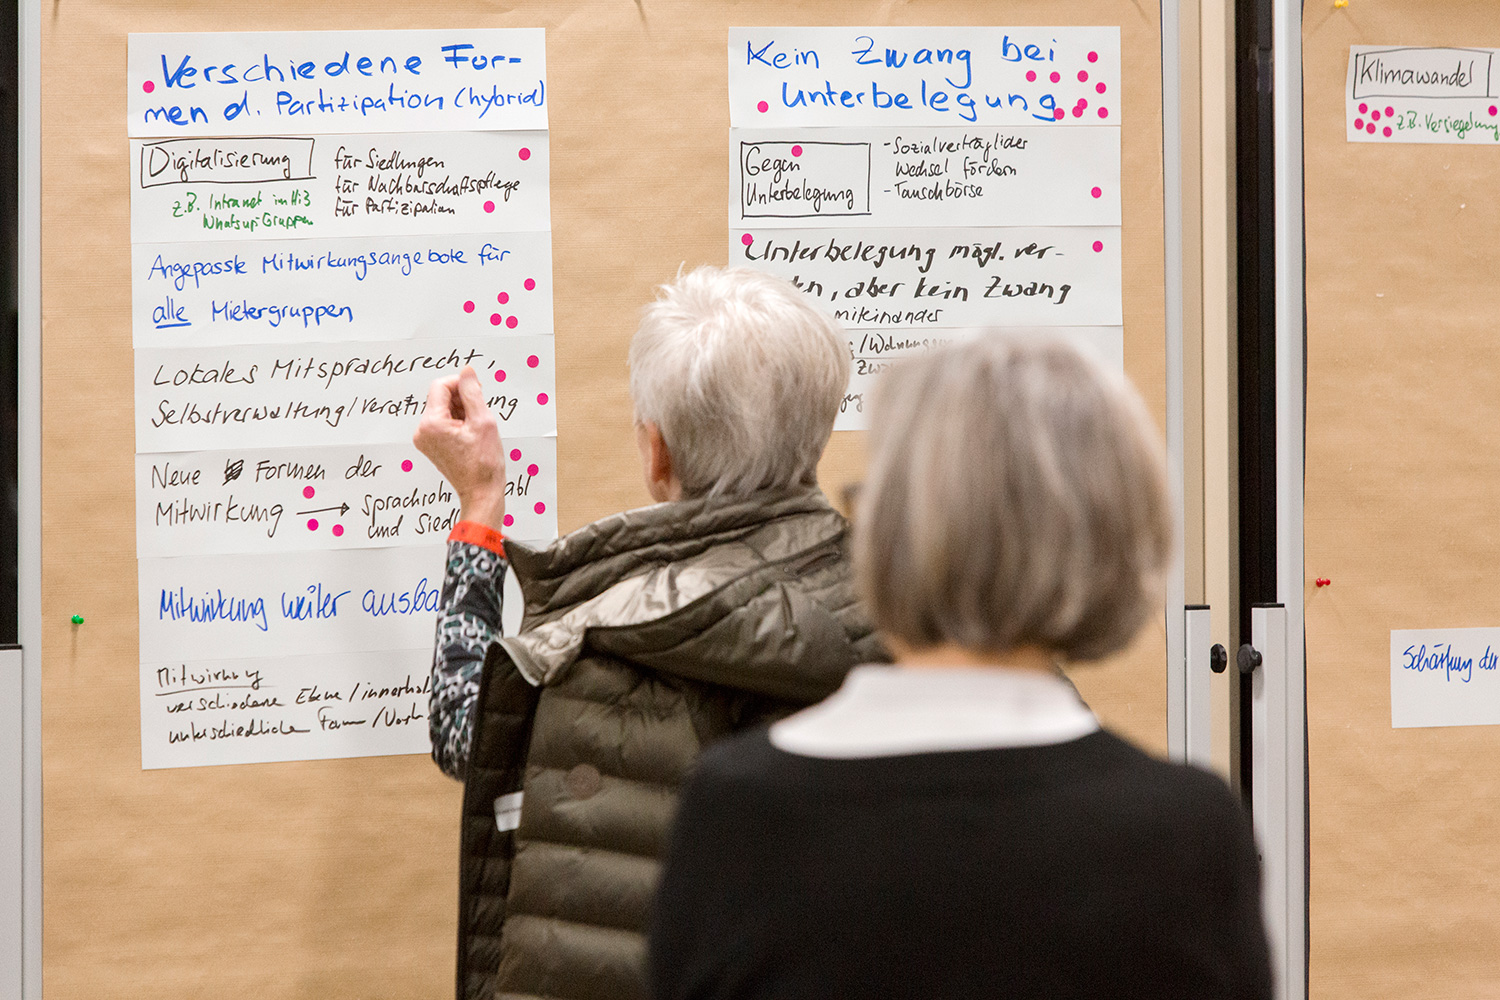 Verschiedene For-
men d. Partizipation (hybrid)
Digitalisierung
z.B. Intranet im Hi3
Whatsup-Gruppen
für Siedlungen
für Nachbarschaftspflege
für Partizipation
Angepasste Mitwirkungsangebote für
alle Mietergruppen
Lokales Mitspracherecht,
Selbstverwaltung/
Neue Formen der
Mitwirkung → Sprachrohr
und Siedl
Mitwirkung weiter ausba
Mitwirkung
verschiedene Ebene / innerhal
unterschiedliche Form /
Kein Zwang bei
Unterbelegung
Gegen
Unterbelegung
- Sozialverträglicher
Wechsel fördern
- Tauschbörse
Unterbelegung mögl. ver-
en, aber kein Zwang
miteinander
/Wohnungs
Zw
Klimawandel
z.B. Versiegelung
Schärfung der